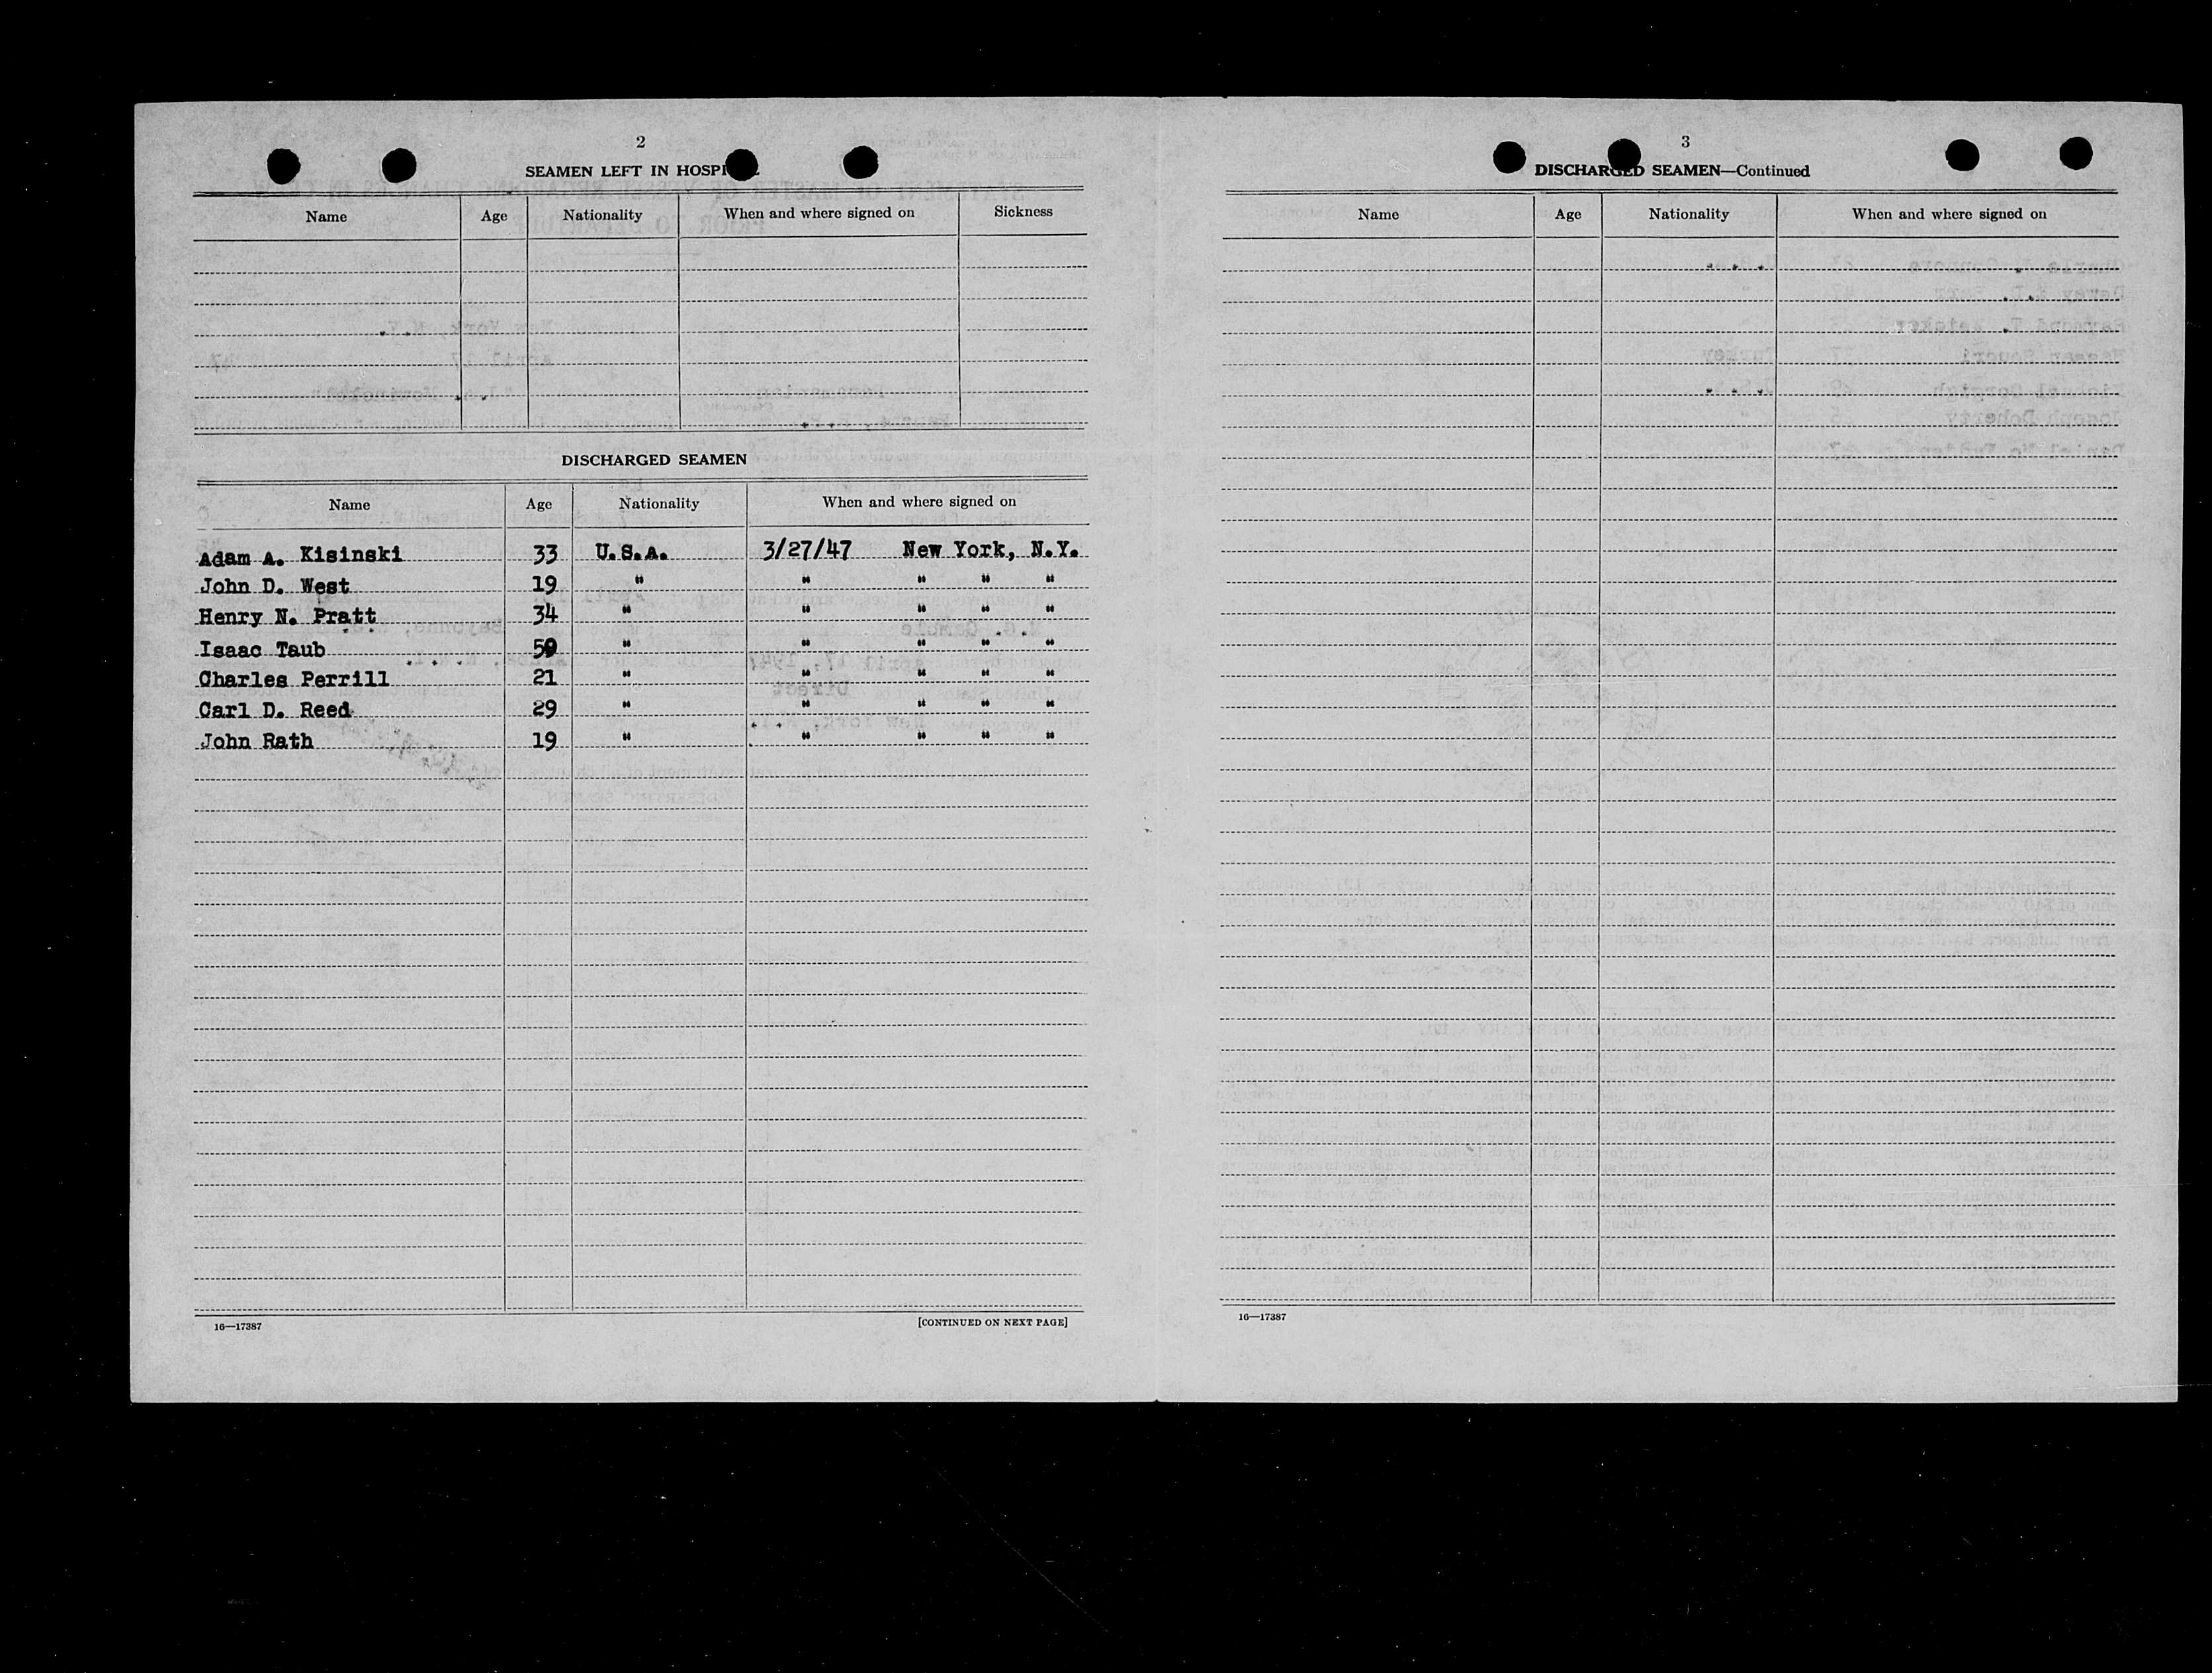 2
SEAMEN LEFT IN HOSPI
Name Age Nationality When and where signed on Sickness
DISCHARGED SEAMEN
Name Age Nationality When and where signed on
Adam A. Kisinski 33 U.S.A. 3/27/47 New York, N.Y.
John D. West 19 " " " " "
Henry N. Pratt 34 " " " " "
Isaac Taub 50 " " " " "
Charles Perrill 21 " " " " "
Carl D. Reed 29 " " " " "
John Rath 19 " " " " "
16—17387 [CONTINUED ON NEXT PAGE]
3
DISCHARGED SEAMEN—Continued
Name Age Nationality When and where signed on
16—17387